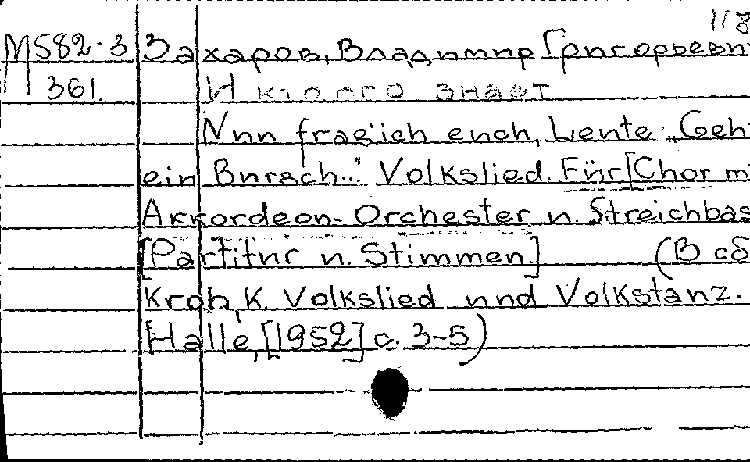 118
М582-3 Захаров, Владимир Григорьеви
361. И кто его знает
Nun frag ich euch, Leute „Geht
ein Bursch..." Volkslied. Für [Chor m
Akkordeon-Orchester u. Streichbas
[Partitur u. Stimmen] (В сб
Kroh, K. Volkslied und Volkstanz.
Halle, [1952] с. 3-5)